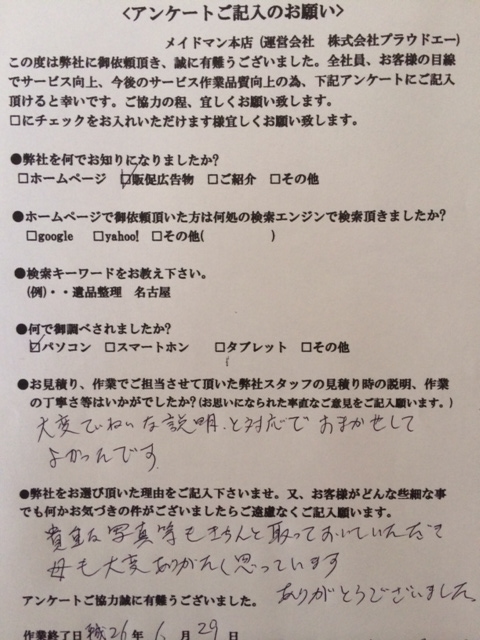 <アンケートご記入のお願い>
メイドマン本店 (運営会社　株式会社プラウドエー)
この度は弊社に御依頼頂き、誠に有難うございました。全社員、お客様の目線
でサービス向上、今後のサービス作業品質向上の為、下記アンケートにご記入
頂けると幸いです。ご協力の程、宜しくお願い致します。
□にチェックをお入れいただけます様宜しくお願い致します。
●弊社を何でお知りになりましたか?
□ホームページ　☑販促広告物　□ご紹介　□その他
●ホームページで御依頼頂いた方は何処の検索エンジンで検索頂きましたか?
□google　□yahoo!　□その他(　　　　　)
●検索キーワードをお教え下さい。
(例)・・遺品整理　名古屋
●何で御調べされましたか?
☑パソコン　□スマートホン　□タブレット　□その他
●お見積り、作業でご担当させて頂いた弊社スタッフの見積り時の説明、作業
の丁寧さ等はいかがでしたか?(お思いになられた事直なご意見をご記入願います。)
大変ていねいな説明、と対応で おまかせして
よかったです
●弊社をお選び頂いた理由をご記入下さいませ。又、お客様がどんな些細な事
でも何かお気づきの件がございましたらご遠慮なくご記入願います。
貴重な写真等もきちんと取っておいていただき
母も大変ありがたく思っています
ありがとうございました。
アンケートご協力誠に有難うございました。
作業終了日 26年 6月 29日